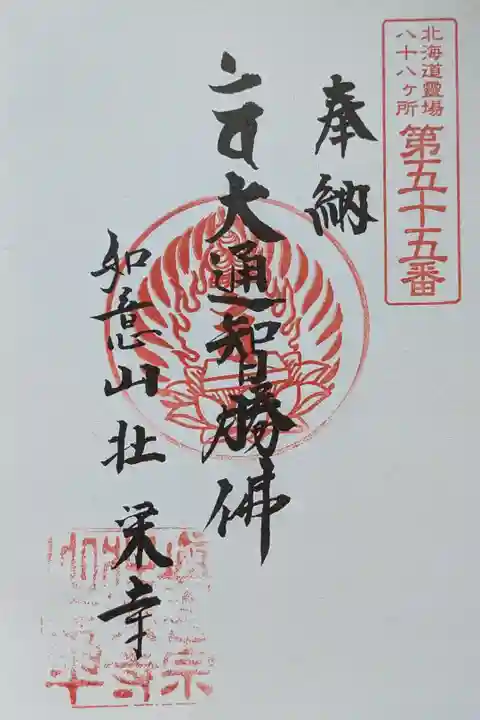 北海道霊場
八十八ケ所
第五十五番
奉納
大通智勝佛
如意山壮栄寺